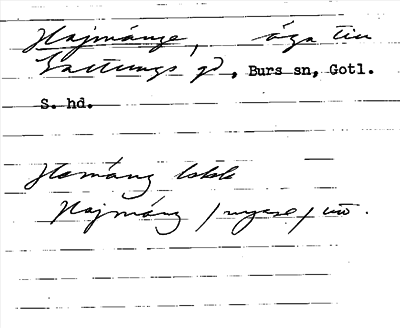 Hajmänge, äga till
Gattungs gd, Burs sn, Gotl.
S. hd.
Hemäng lokk
Hajmäng